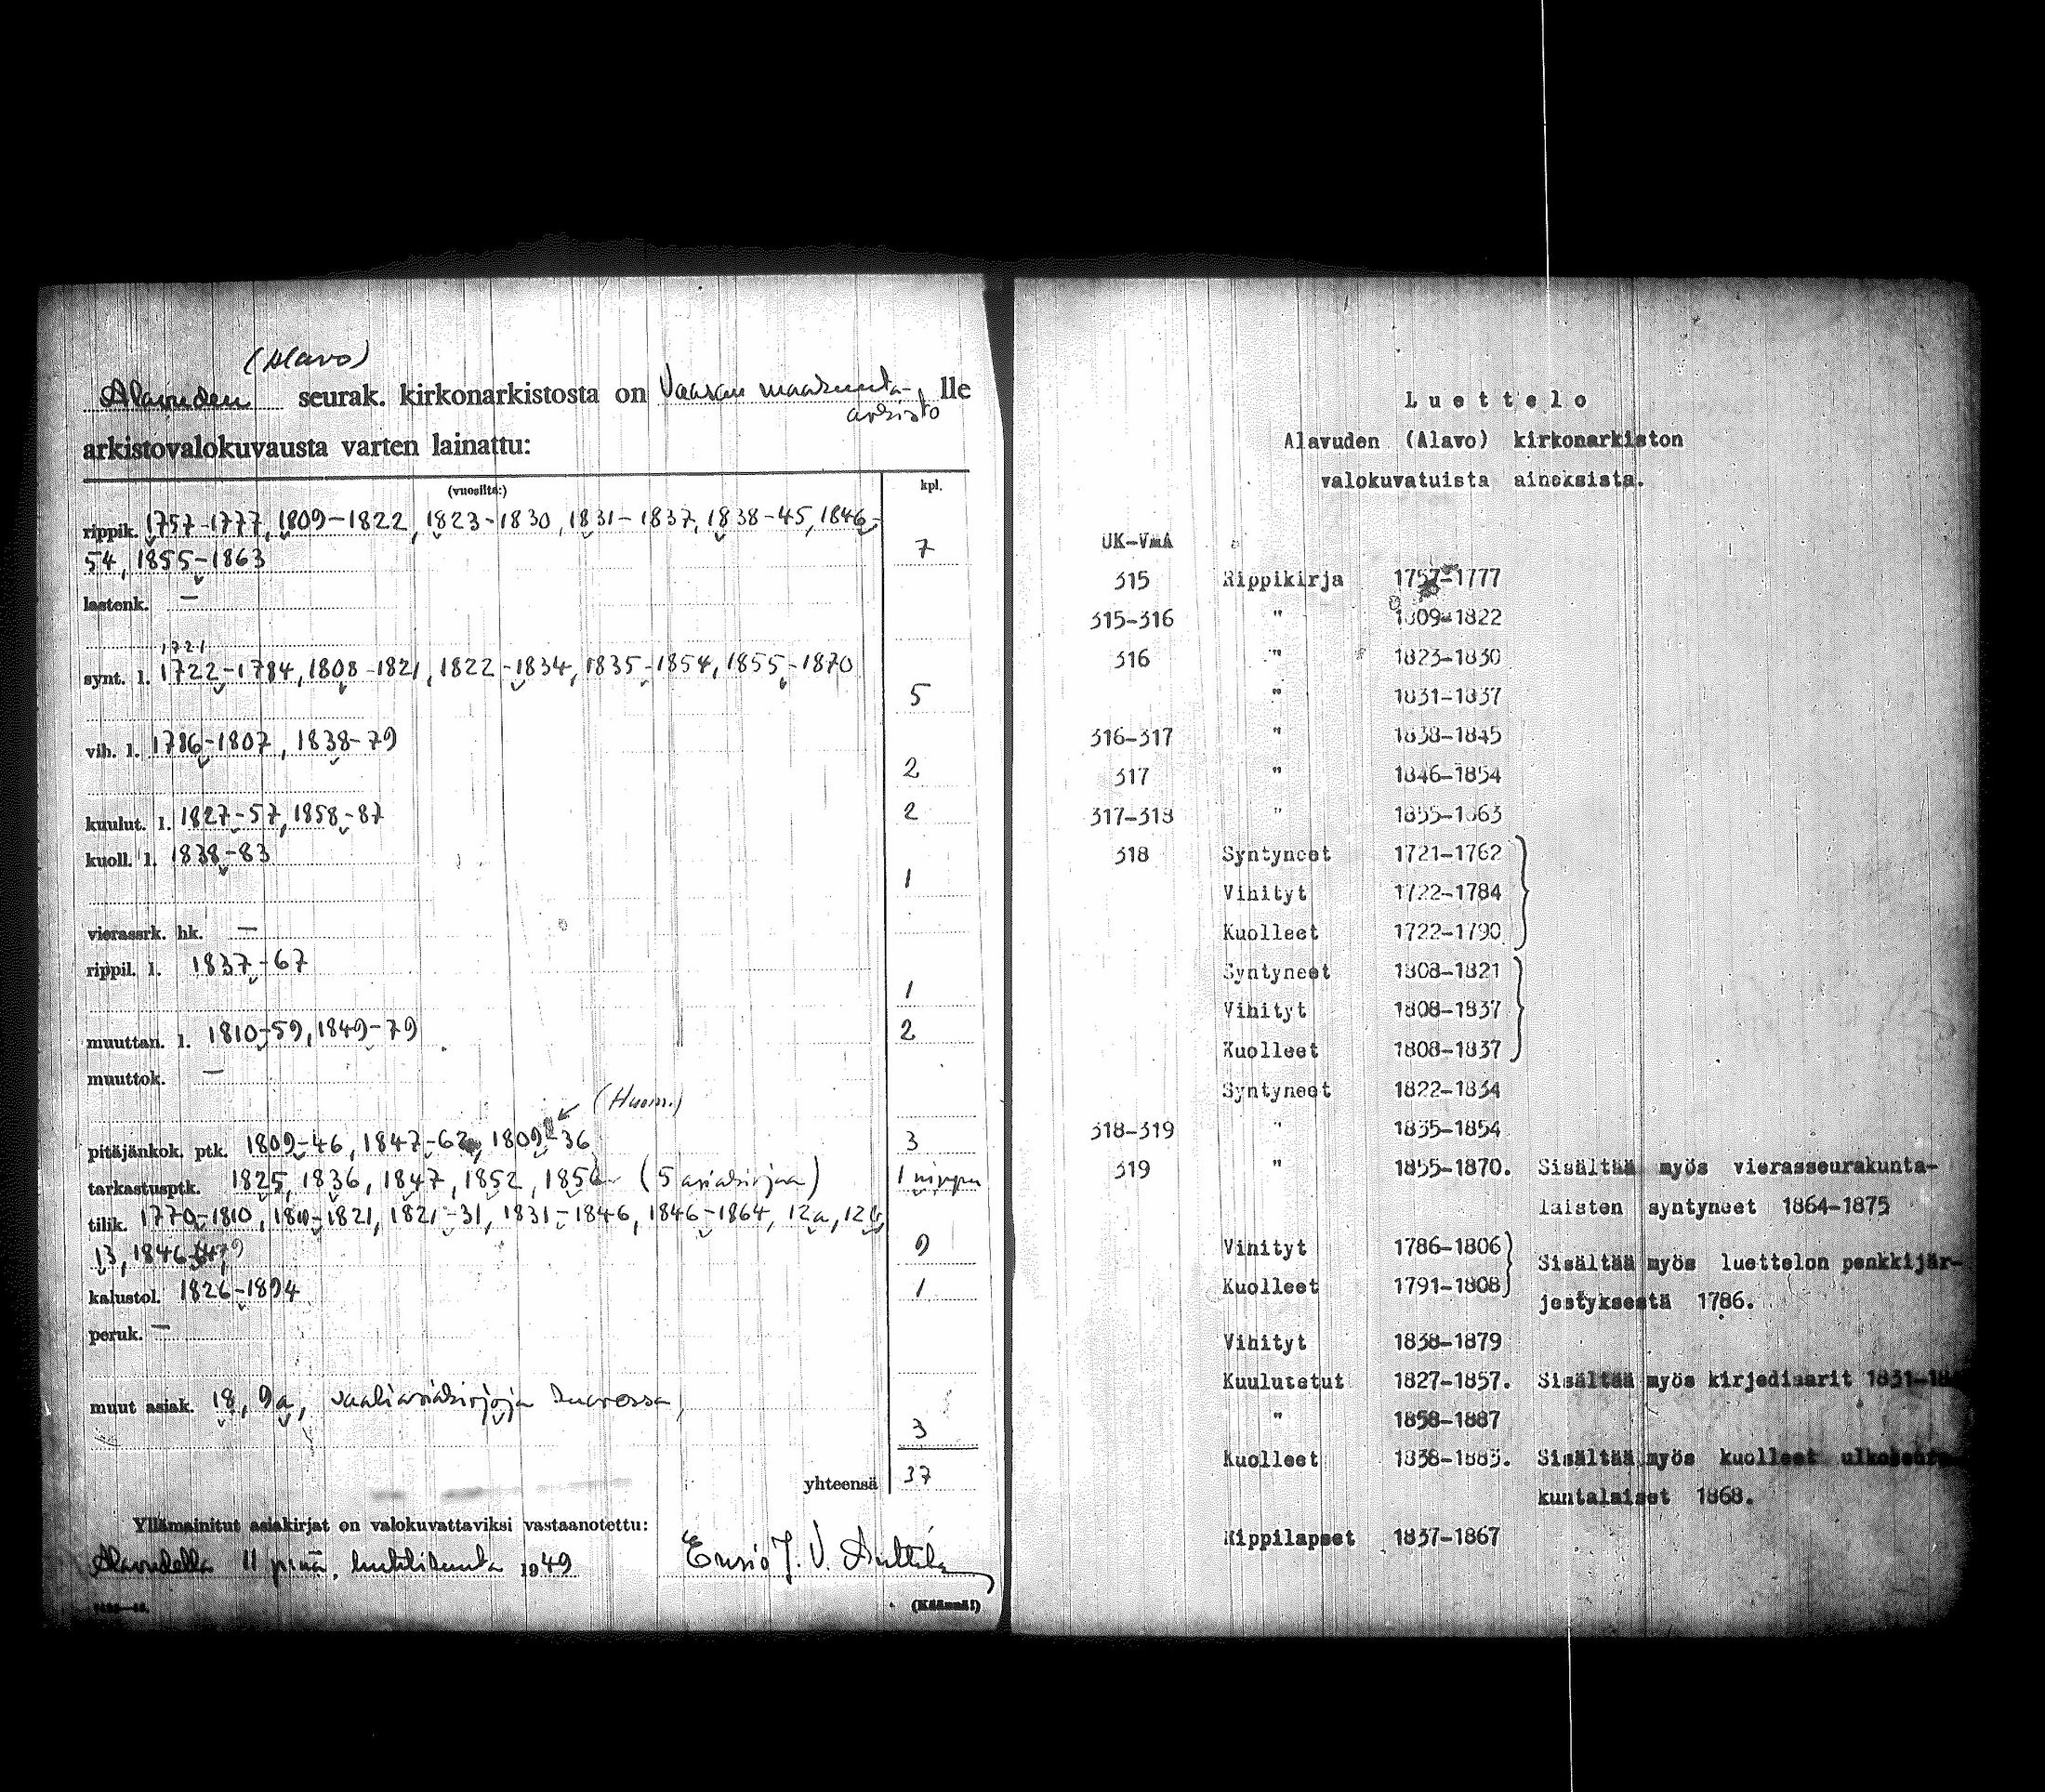 (Alavo)
Alavuden seurak. kirkonarkistosta on Vaasan maakunta- lle
arkisto
arkistovalokuvausta varten lainattu:
(vuosilta:) kpl.
rippik. 1757-1777, 1809-1822, 1823-1830, 1831-1837, 1838-45, 1846-
54, 1855-1863 7
lastenk. —
1721
synt. l. 1722-1784, 1808-1821, 1822-1834, 1835-1854, 1855-1870
5
vih. l. 1786-1807, 1838-79
2
kuulut. l. 1827-57, 1858-87 2
kuoll. l. 1838-83
1
vierassrk. hk. —
rippil. l. 1837-67
1
muuttan. l. 1810-59, 1849-79 2
muuttok. —
(Huom.)
pitäjänkok. ptk. 1809-46, 1847-62, 1809-36 3
tarkastusptk. 1825, 1836, 1847, 1852, 1856 (5 asiakirjaa) 1 nippu
tilik. 1770-1810, 1810-1821, 1821-31, 1831-1846, 1846-1864, 12a, 12b,
13, 1846- 9
kalustol. 1826-1894 1
peruk. —
muut asiak. 18, 9a, vaaliasiakirjoja
3
yhteensä 37
Yllämainitut asiakirjat on valokuvattaviksi vastaanotettu:
Alavudella 11 p:nä huhtikuuta 1949 Ensio J. V. Anttila
(Käännä!)
Luettelo
Alavuden (Alavo) kirkonarkiston
valokuvatuista aineksista.
UK-VmA
315 Rippikirja 1757-1777
315-316 " 1809-1822
316 " 1823-1830
" 1831-1837
316-317 " 1838-1845
317 " 1846-1854
317-318 " 1855-1863
318 Syntyneet 1721-1762
Vihityt 1722-1784
Kuolleet 1722-1790
Syntyneet 1808-1821
Vihityt 1808-1837
Kuolleet 1808-1837
Syntyneet 1822-1834
318-319 " 1835-1854
319 " 1855-1870. Sisältää myös vierasseurakunta-
laisten syntyneet 1864-1875
Vihityt 1786-1806
Sisältää myös luettelon penkkijär-
Kuolleet 1791-1808
jestyksestä 1786.
Vihityt 1838-1879
Kuulutetut 1827-1857. Sisältää myös kirjediaarit
" 1858-1887
Kuolleet 1838-1883. Sisältää myös kuolleet
kuntalaiset 1868.
Rippilapset 1837-1867